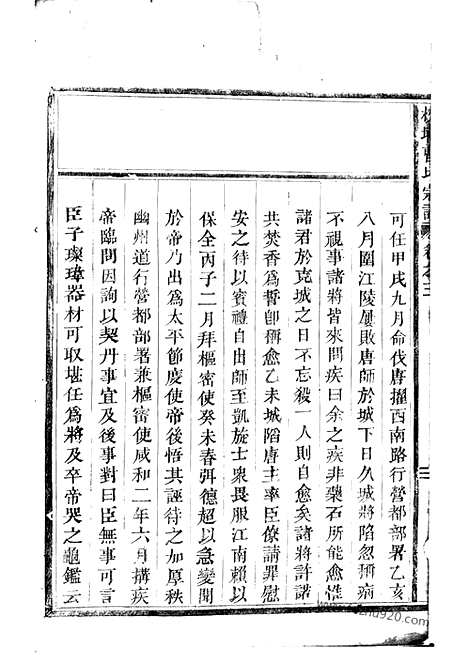 曹氏宗譜 卷之二
可任甲戌九月命伐唐擢西南路行營都部署乙亥
八月圍江陵屢敗唐師於城下日久城將陷忽稱病
不視事諸將皆來問疾曰余之疾非藥石所能愈惟
諸君於克城之日不忘殺一人則自愈矣諸將許諾
共焚香爲誓卽稱愈乙未城陷唐主率臣僚請罪慰
安之待以賓禮自出師至凱旋士衆畏服江南賴以
保全丙子二月拜樞密使癸未春弭德超以急變聞
於帝乃出爲太平節度使帝後悟其誣待之加厚秩
幽州道行營都部署兼樞密使咸和二年六月搆疾
帝臨問因詢以契丹事宜及後事對曰臣無事可言
臣子璨瑋器材可取堪任爲將及卒帝哭之龜鑑云